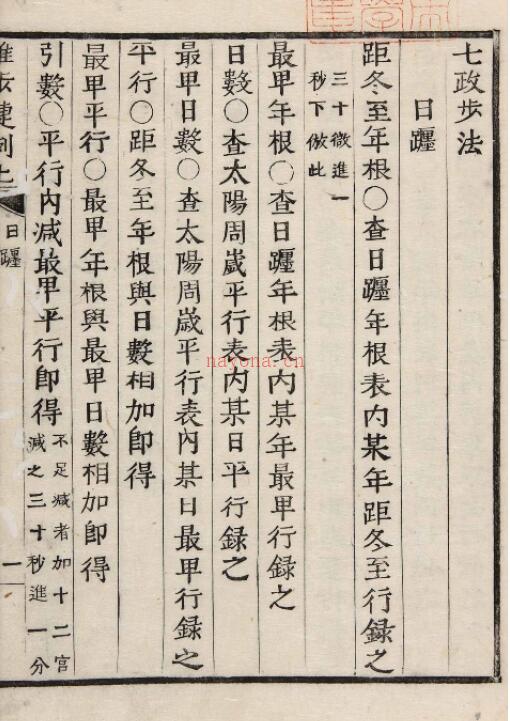 七政步法
日躔
距冬至年根〇查日躔年根表內某年距冬至行録之
三十微進一
秒下倣此
最甲年根〇查日躔年根表內某年最甲行録之
日數〇查太陽周嵗平行表內某日平行録之
最甲日數〇查太陽周嵗平行表內某日最甲行録之
平行〇距冬至年根與日數相加即得
最甲平行〇最甲年根與最甲日數相加即得
引數〇平行內減最甲平行即得
不足減者加十二宮
減之三十秒進一分
推步捷
上
日躔
一
nayona.cn